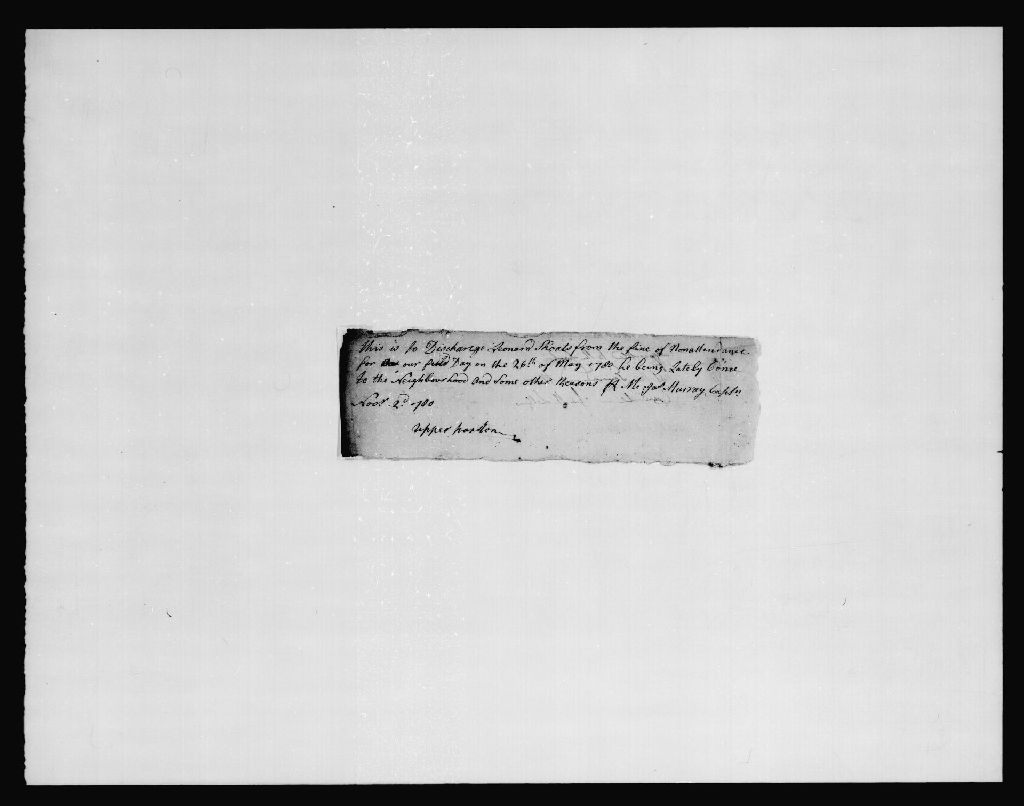 This is to Discharege Leonard Shoals from the fine of Nonattendance
for our field Day on the 26th of May 1780 he being Lately Come
to the Neighbourhood and Some other Reasons Pr Me Jas Murray Captn
Novr 2d 1780
upper paxten